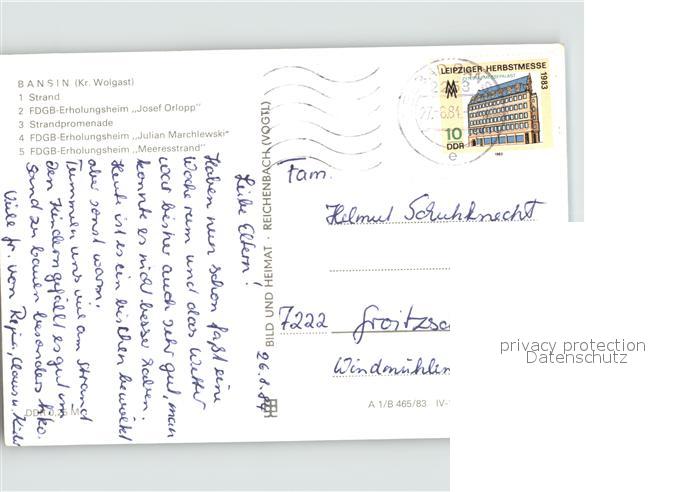 BANSIN (Kr. Wolgast)
1 Strand
2 FDGB-Erholungsheim „Josef Orlopp"
3 Strandpromenade
4 FDGB-Erholungsheim „Julian Marchlewski"
5 FDGB-Erholungsheim „Meeresstrand"
LEIPZIGER HERBSTMESSE
1983
10
DDR
1983
e
26.6.84
Liebe Eltern!
Haben nun schon fast eine
Woche rum und das Wetter
war bisher auch sehr gut, man
konnte es nicht besser haben.
Heute ist es ein bischen bewölkt
aber sonst warm.
Tummeln uns viel am Strand
den Kindern gefällt es gut im
Sand zu bauen besonders
Viele Gr. von Regina, Claus u. Kinder
BILD UND HEIMAT · REICHENBACH (VOGTL)
Fam.
Helmut Schuhknecht
7222 Groitzsc
Windmühlen
DDR 0,25 M
A 1/B 465/83 IV-
privacy protection
Datenschutz